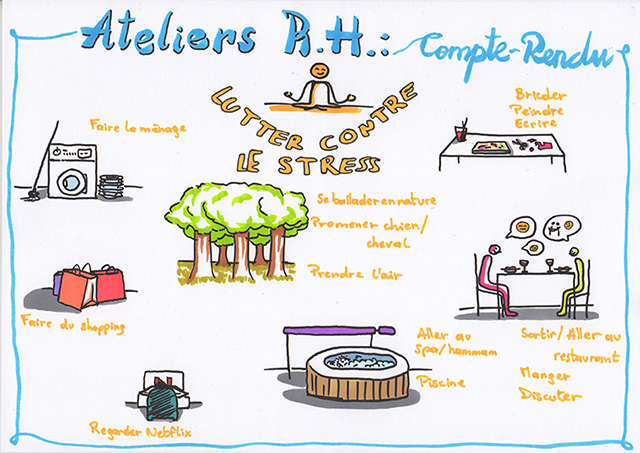 Ateliers R.H.: Compte-Rendu
LUTTER CONTRE
LE STRESS
Faire le ménage
Bricoler
Peindre
Ecrire
Se ballader en nature
Promener chien/
cheval
Prendre l'air
Faire du shopping
Aller au
spa/hammam
Piscine
Sortir/Aller au
restaurant
Manger
Discuter
Regarder Netflix